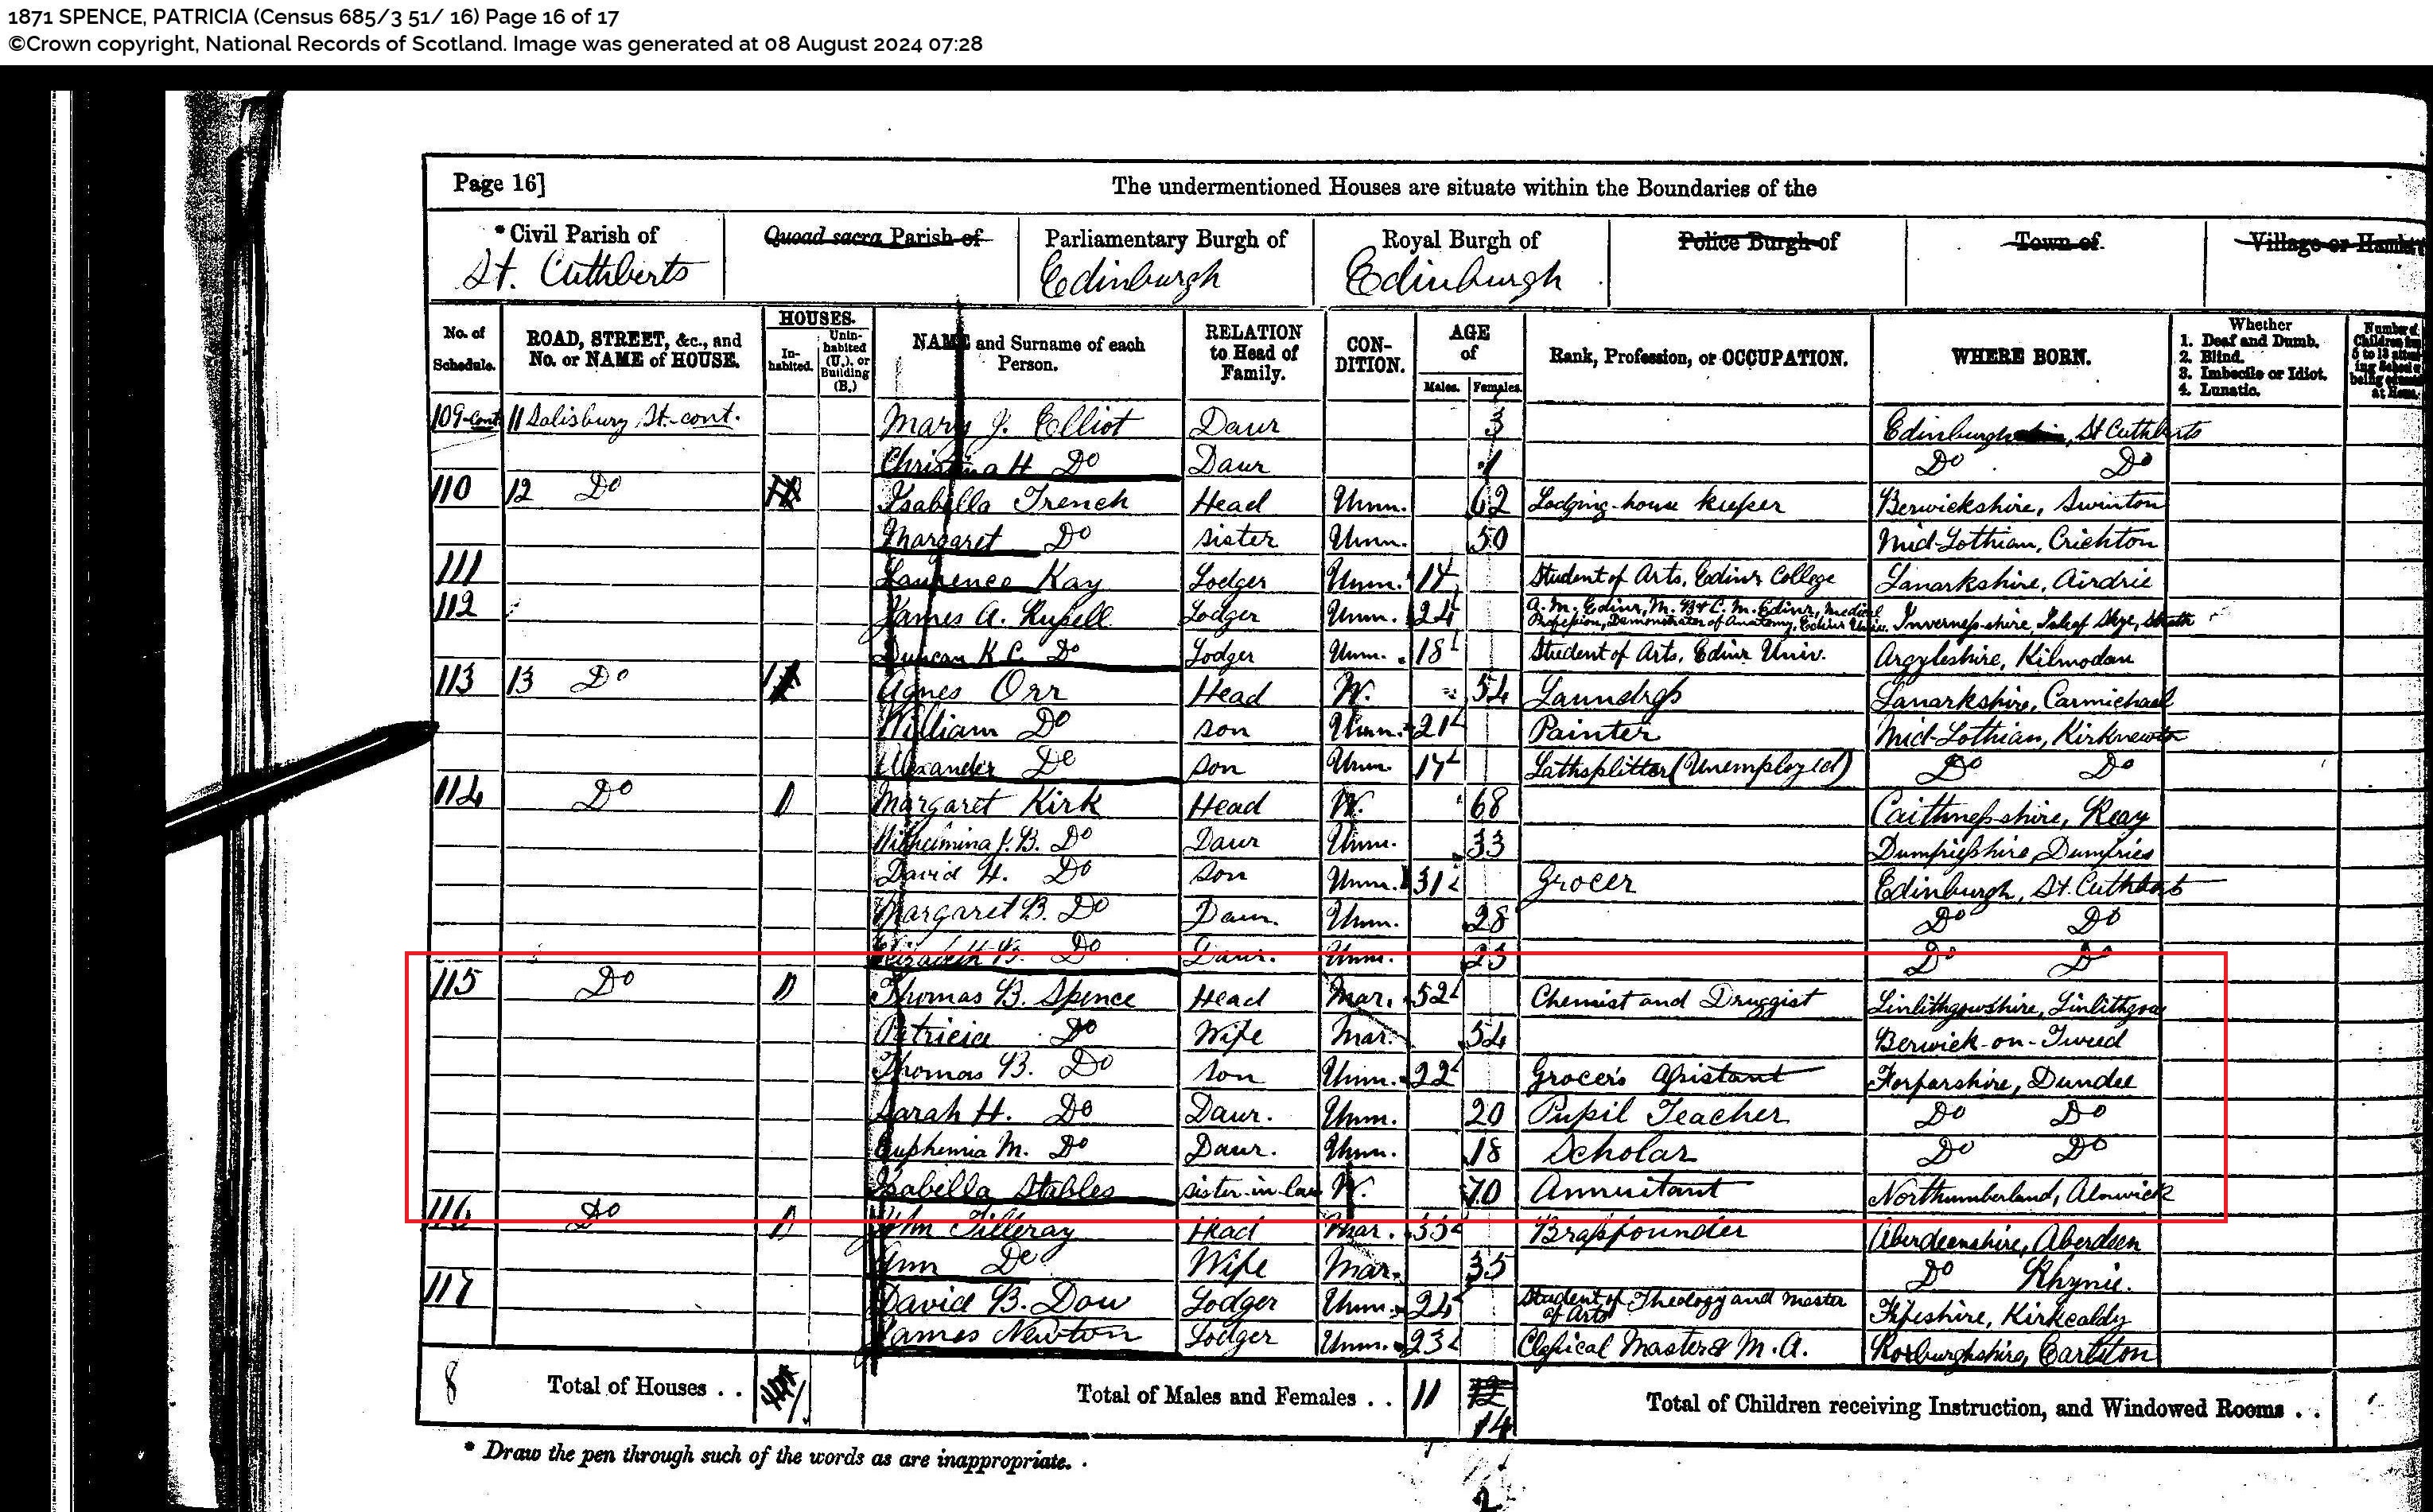 1871 SPENCE, PATRICIA (Census 685/3 51/ 16) Page 16 of 17
©Crown copyright, National Records of Scotland. Image was generated at 08 August 2024 07:28
Page 16] The undermentioned Houses are situate within the Boundaries of the
* Civil Parish of Quoad sacra Parish of Parliamentary Burgh of Royal Burgh of Police Burgh of Town of Village or
St. Cuthberts Edinburgh Edinburgh
No. of Schedule. ROAD, STREET, &c., and No. or NAME of HOUSE. HOUSES. In-habited. Unin-habited (U.), or Building (B.) NAME and Surname of each Person. RELATION to Head of Family. CON-DITION. AGE of Males. Females. Rank, Profession, or OCCUPATION. WHERE BORN. Whether 1. Deaf and Dumb. 2. Blind. 3. Imbecile or Idiot. 4. Lunatic.
109-cont 11 Salisbury St.-cont. Mary J. Elliot Daur 3 Edinburgh, St Cuthberts
Christina H. Do Daur 1 Do Do
110 12 Do Isabella Trench Head Unm. 62 Lodging-house keeper Berwickshire, Swinton
Margaret Do sister Unm. 50 Mid-Lothian, Crichton
111 Laurence Kay Lodger Unm. 17 Student of Arts, Edinr College Lanarkshire, Airdrie
112 James A. Russell Lodger Unm. 24 A.M. Edinr, M.B & C.M. Edinr, Medical Profession, Demonstrator of Anatomy, Edinr Univ. Inverness-shire, Isle of Skye, Strath
Duncan K C. Do Lodger Unm. 18 Student of Arts, Edinr Univ. Argyleshire, Kilmodan
113 13 Do 1 Agnes Orr Head W. 54 Laundress Lanarkshire, Carmichael
William Do son Unm. 21 Painter Mid-Lothian, Kirknewton
Alexander Do son Unm. 17 Lathsplitter (Unemployed) Do Do
114 Do 1 Margaret Kirk Head W. 68 Caithness-shire, Reay
Wilhelmina J. B. Do Daur Unm. 33 Dumfriesshire, Dumfries
David H. Do son Unm. 31 Grocer Edinburgh, St. Cuthberts
Margaret B. Do Daur. Unm. 28 Do Do
Elizabeth B. Do Daur. Unm. 23 Do Do
115 Do 1 Thomas B. Spence Head Mar. 52 Chemist and Druggist Linlithgowshire, Linlithgow
Patricia Do Wife Mar. 54 Berwick-on-Tweed
Thomas B. Do son Unm. 22 Grocer's Assistant Forfarshire, Dundee
Sarah H. Do Daur. Unm. 20 Pupil Teacher Do Do
Euphemia M. Do Daur. Unm. 18 Scholar Do Do
Isabella Stables sister-in-law W. 70 Annuitant Northumberland, Alnwick
116 Do 1 John Tilleray Head Mar. 35 Brassfounder Aberdeenshire, Aberdeen
Ann Do Wife Mar. 35 Do Rhynie.
117 David B. Dow Lodger Unm. 24 Student of Theology and Master of Arts Fifeshire, Kirkcaldy
James Newton Lodger Unm. 23 Classical Master & M.A. Roxburghshire, Castleton
8 Total of Houses . . Total of Males and Females . . 11 12 14 Total of Children receiving Instruction, and Windowed Rooms . .
* Draw the pen through such of the words as are inappropriate.
2